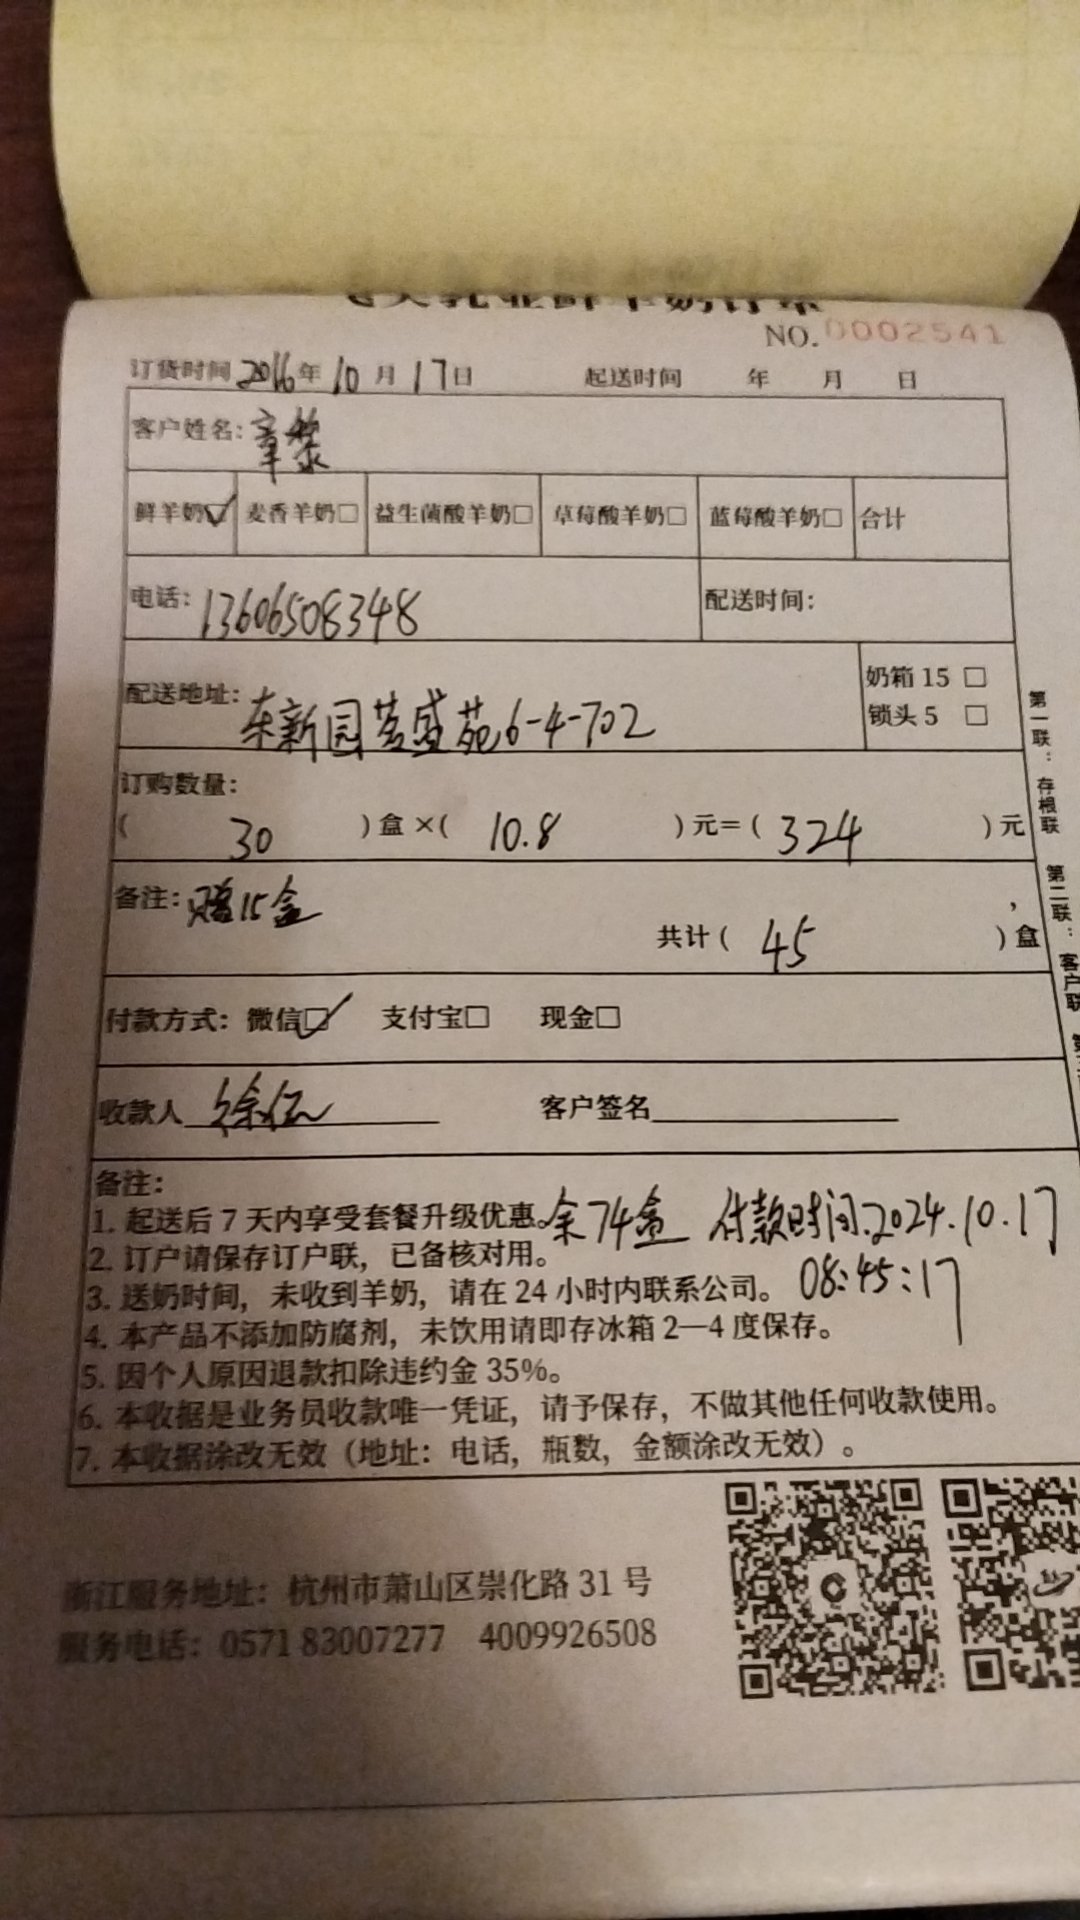 NO.0002541
订货时间 2016年 10月 17日 起送时间 年 月 日
客户姓名: 章黎
鲜羊奶☑ 麦香羊奶□ 益生菌酸羊奶□ 草莓酸羊奶□ 蓝莓酸羊奶□ 合计
电话: 13606508348 配送时间:
配送地址: 东新园 盛苑6-4-702
奶箱 15 □
锁头 5 □
订购数量:
( 30 ) 盒 ×( 10.8 ) 元= ( 324 ) 元
备注: 赠15盒
共计 ( 45 ) 盒
付款方式: 微信☑ 支付宝□ 现金□
收款人 徐 客户签名
备注:
1. 起送后 7 天内享受套餐升级优惠。余74盒 付款时间.2024.10.17
2. 订户请保存订户联，已备核对用。
08:45:17
3. 送奶时间，未收到羊奶，请在 24 小时内联系公司。
4. 本产品不添加防腐剂，未饮用请即存冰箱 2—4 度保存。
5. 因个人原因退款扣除违约金 35%。
6. 本收据是业务员收款唯一凭证，请予保存，不做其他任何收款使用。
7. 本收据涂改无效（地址：电话，瓶数，金额涂改无效）。
第一联：存根联
第二联：客户联
浙江服务地址：杭州市萧山区崇化路 31 号
服务电话：0571 83007277 4009926508